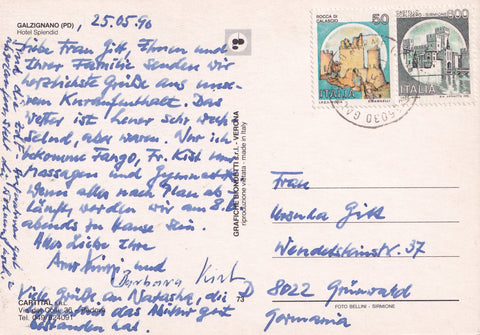 GALZIGNANO (PD)
Hotel Splendid
25.05.90
Liebe Frau Gitt, Ihnen und
Ihrer Familie senden wir
herzlichste Grüße aus unse-
rem Kuraufenthalt. Das
Wetter ist heuer sehr wech
selnd, aber warm. Nur ich
bekomme Fango, Fr. Kist nur
Massagen und Gymnastik.
Wenn alles nach Plan ab
läuft, werden wir am 8.6.
abends zu Hause sein.
Alles Liebe Ihre
und
Barbara Kist
Viele Grüße an Natascha, die
das Abitur gut
bestanden hat.
CARTITAL s.r.l.
Tel. 049/624091
73
GRAFICHE BIONDETTI s.r.l. - VERONA
riproduzione vietata - made in Italy
ROCCA DI
CALASCIO
50
ITALIA
SIRMIONE
600
ITALIA
Frau
Ursula Gitt
Wendelsteinstr. 37
D 8022 Grünwald
Germania
FOTO BELLINI - SIRMIONE